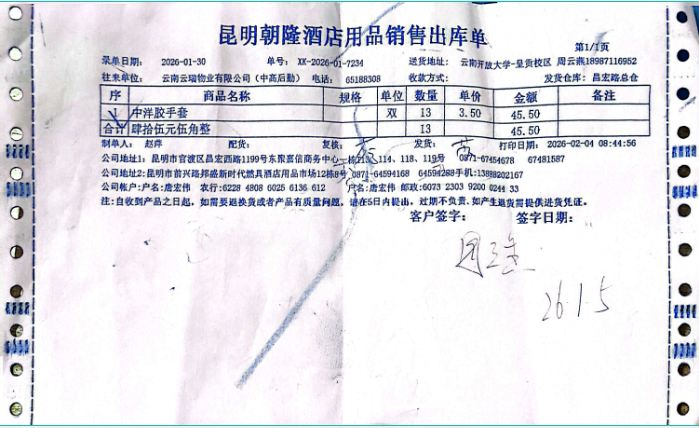 昆明朝隆酒店用品销售出库单
第1/1页
录单日期: 2026-01-30 单号: XK-2026-01-7234 送货地址: 云南开放大学-呈贡校区 周云燕18987116952
往来单位: 云南云瑞物业有限公司(中高后勤) 电话: 65188308 收款方式: 发货仓库: 昌宏路总仓
序 商品名称 规格 单位 数量 单价 金额 备注
1 中洋胶手套 双 13 3.50 45.50
合计 肆拾伍元伍角整 13 45.50
制单人: 赵萍 配货: 复核: 发货: 打印日期: 2026-02-04 08:44:56
公司地址1: 昆明市官渡区昌宏西路1199号东聚嘉信商务中心 114、118、119号 0871-67454678 67481587
公司地址2:昆明市前兴路邦盛新时代燃具酒店用品市场12栋8号 0871-64594168 64594268手机:13888202167
公司帐户:户名:唐宏伟 农行:6228 4808 6025 6136 612 户名:唐宏伟 邮政:6073 2303 9200 0244 33
注:自收到产品之日起,如需要退换货或者产品有质量问题,请在5日内提出,过期不负责.如产生退货需提供进货凭证。
客户签字: 签字日期:
26.1.5